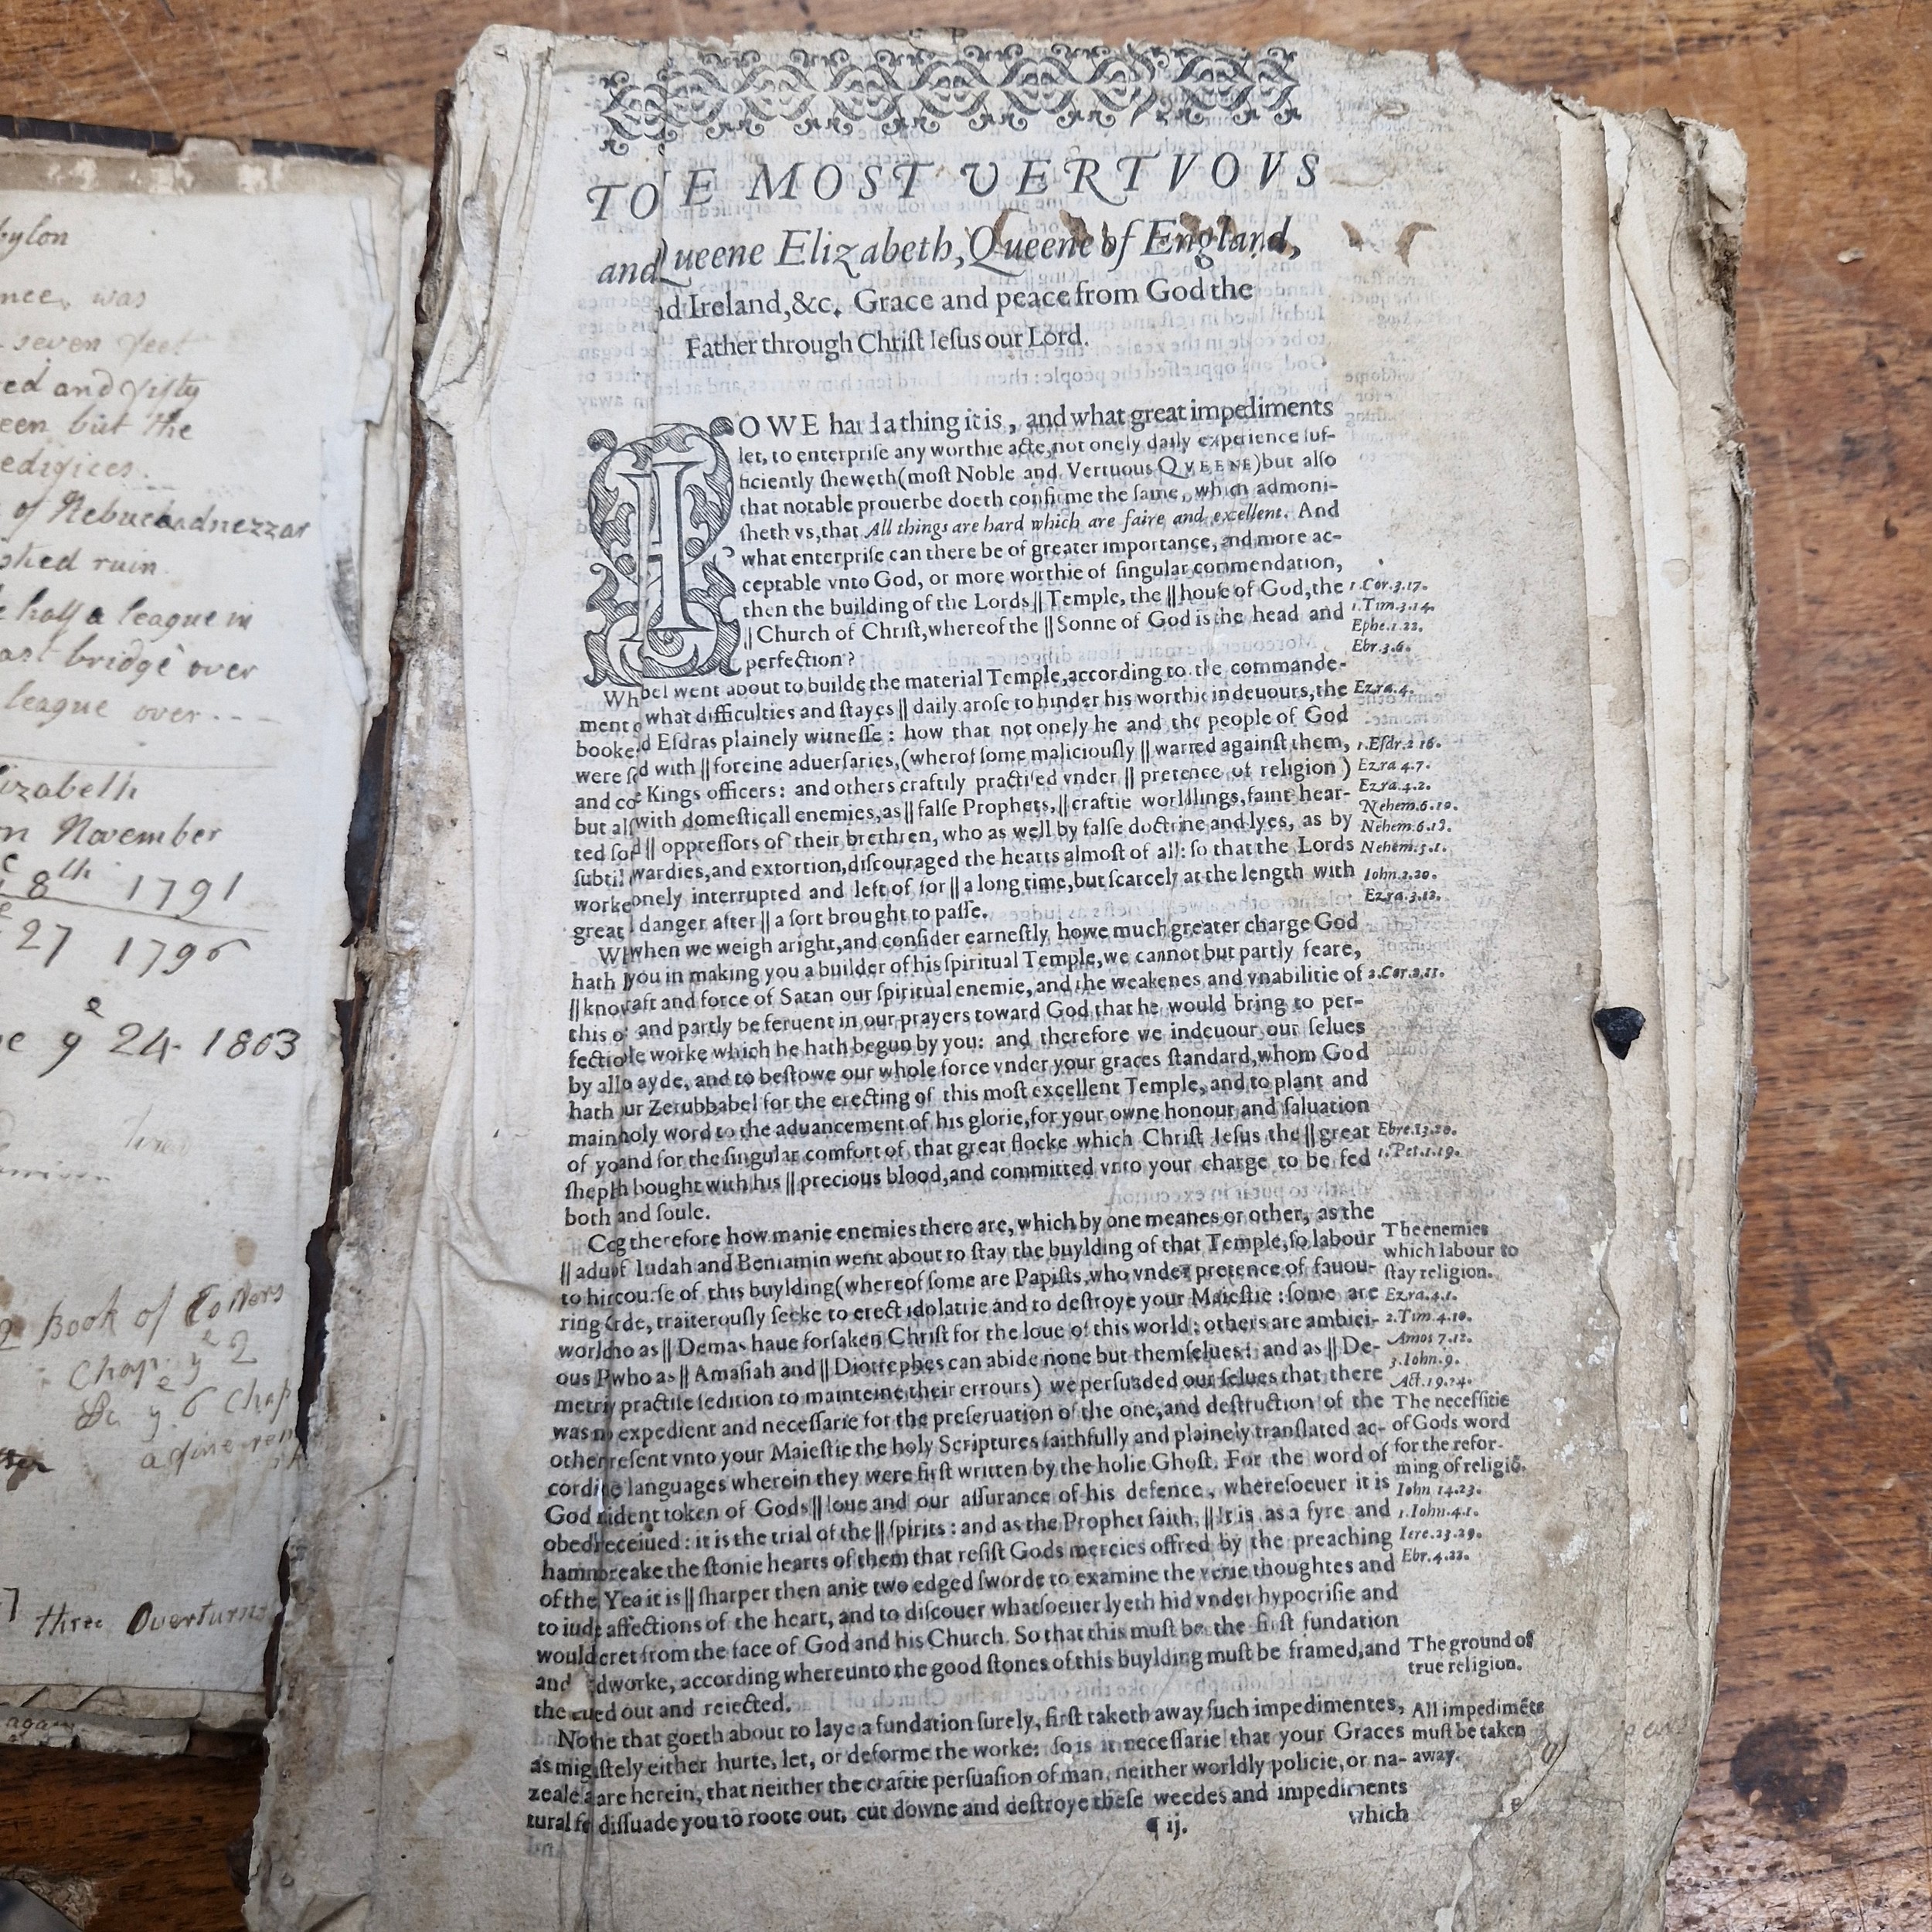 bylon
was
seven feet
ed and fifty
een but the
edifices.
of Nebuchadnezzar
ruin.
half a league in
bridge over
league over
izabeth
on November
8th 1791
27 1796
ye 24 1803
Book of
Chap ye 2
ye 6 Chap
three Overturns
again
TO E MOST VERTVOVS
and Queene Elizabeth, Queene of England,
nd Ireland, &c. Grace and peace from God the
Father through Chriſt Ieſus our Lord.
HOWE hard a thing it is, and what great impediments
let, to enterpriſe any worthie acte, not onely daily experience ſuf-
ficiently ſheweth (moſt Noble and Vertuous QVEENE) but alſo
that notable prouerbe doeth confirme the ſame, which admoni-
ſheth vs, that All things are hard which are faire and excellent. And
what enterpriſe can there be of greater importance, and more ac-
ceptable vnto God, or more worthie of ſingular commendation,
then the building of the Lords || Temple, the || houſe of God, the 1.Cor.3.17.
1.Tim.3.14.
|| Church of Chriſt, whereof the || Sonne of God is the head and Ephe.1.22.
perfection? Ebr.3.6.
Wh bel went about to builde the material Temple, according to the commande-
ment o what difficulties and ſtayes || daily aroſe to hinder his worthie indeuours, the Ezra.4.
booke d Eſdras plainely witneſſe: how that not onely he and the people of God
were ſo d with || foreine aduerſaries, (wherof ſome maliciouſly || warred againſt them, 1.Eſdr.2.16.
and co e Kings officers: and others craftily practiſed vnder || pretence of religion) Ezra 4.7.
Ezra.4.2.
but alſ with domeſticall enemies, as || falſe Prophets, || craftie worldlings, faint hear- Nehem.6.10.
ted ſol d || oppreſſors of their brethren, who as well by falſe doctrine and lyes, as by Nehem.6.18.
ſubtil wardies, and extortion, diſcouraged the hearts almoſt of all: ſo that the Lords Nehem.5.1.
worke onely interrupted and left of for || a long time, but ſcarcely at the length with Iohn.2.20.
great danger after || a ſort brought to paſſe. Ezra.3.12.
W when we weigh aright, and conſider earneſtly howe much greater charge God
hath you in making you a builder of his ſpiritual Temple, we cannot but partly feare,
|| kno raft and force of Satan our ſpiritual enemie, and the weakenes and vnabilitie of 2.Cor.2.11.
this o and partly be feruent in our prayers toward God that he would bring to per-
fectio le worke which he hath begun by you: and therefore we indeuour our ſelues
by all o ayde, and to beſtowe our whole force vnder your graces ſtandard, whom God
hath ur Zerubbabel for the erecting of this moſt excellent Temple, and to plant and
main holy word to the aduancement of his glorie, for your owne honour and ſaluation
of yo and for the ſingular comfort of that great flocke which Chriſt Ieſus the || great Ebre.13.20.
ſhep h bought with his || precious blood, and committed vnto your charge to be fed 1.Pet.1.19.
both and ſoule.
Co g therefore how manie enemies there are, which by one meanes or other, as the The enemies
|| adu of Iudah and Beniamin went about to ſtay the buylding of that Temple, ſo labour which labour to
to hi courſe of this buylding (whereof ſome are Papiſts, who vnder pretence of fauou- ſtay religion.
ring rde, traiterouſly ſeeke to erect idolatrie and to deſtroye your Maieſtie: ſome are Ezra.4.1.
world ho as || Demas haue forſaken Chriſt for the loue of this world: others are ambici- 2.Tim.4.10.
ous P who as || Amaſiah and || Diotrephes can abide none but themſelues: and as || De- Amos 7.12.
3.Iohn.9.
metri practiſe ſedition to mainteine their errours) we perſuaded our ſelues that there Act.19.24.
was n expedient and neceſſarie for the preſeruation of the one, and deſtruction of the The neceſſitie
other reſent vnto your Maieſtie the holy Scriptures faithfully and plainely translated ac- of Gods word
cordi e languages wherein they were firſt written by the holie Ghoſt. For the word of for the refor-
ming of religiõ.
God rident token of Gods || loue and our aſſurance of his defence, whereſoeuer it is Iohn 14.23.
obed receiued: it is the trial of the || ſpirits: and as the Prophet ſaith, || It is as a fyre and 1.Iohn.4.1.
ham breake the ſtonie hearts of them that reſiſt Gods mercies offred by the preaching Iere.23.29.
of the Yea it is || ſharper then anie two edged ſworde to examine the verie thoughtes and Ebr.4.22.
to iud affections of the heart, and to diſcouer whatſoeuer lyeth hid vnder hypocriſie and
would cret from the face of God and his Church. So that this muſt be the firſt fundation
and dworke, according whereunto the good ſtones of this buylding muſt be framed, and The ground of
the ued out and reiected. true religion.
No he that goeth about to laye a fundation ſurely, firſt taketh away ſuch impedimentes, All impedimẽts
as mig ſtely either hurte, let, or deforme the worke: ſo is it neceſſarie that your Graces muſt be taken
zeale are herein, that neither the craftie perſuaſion of man, neither worldly policie, or na- away.
tural fe diſſuade you to roote out, cut downe and deſtroye theſe weedes and impediments
¶ ij. which